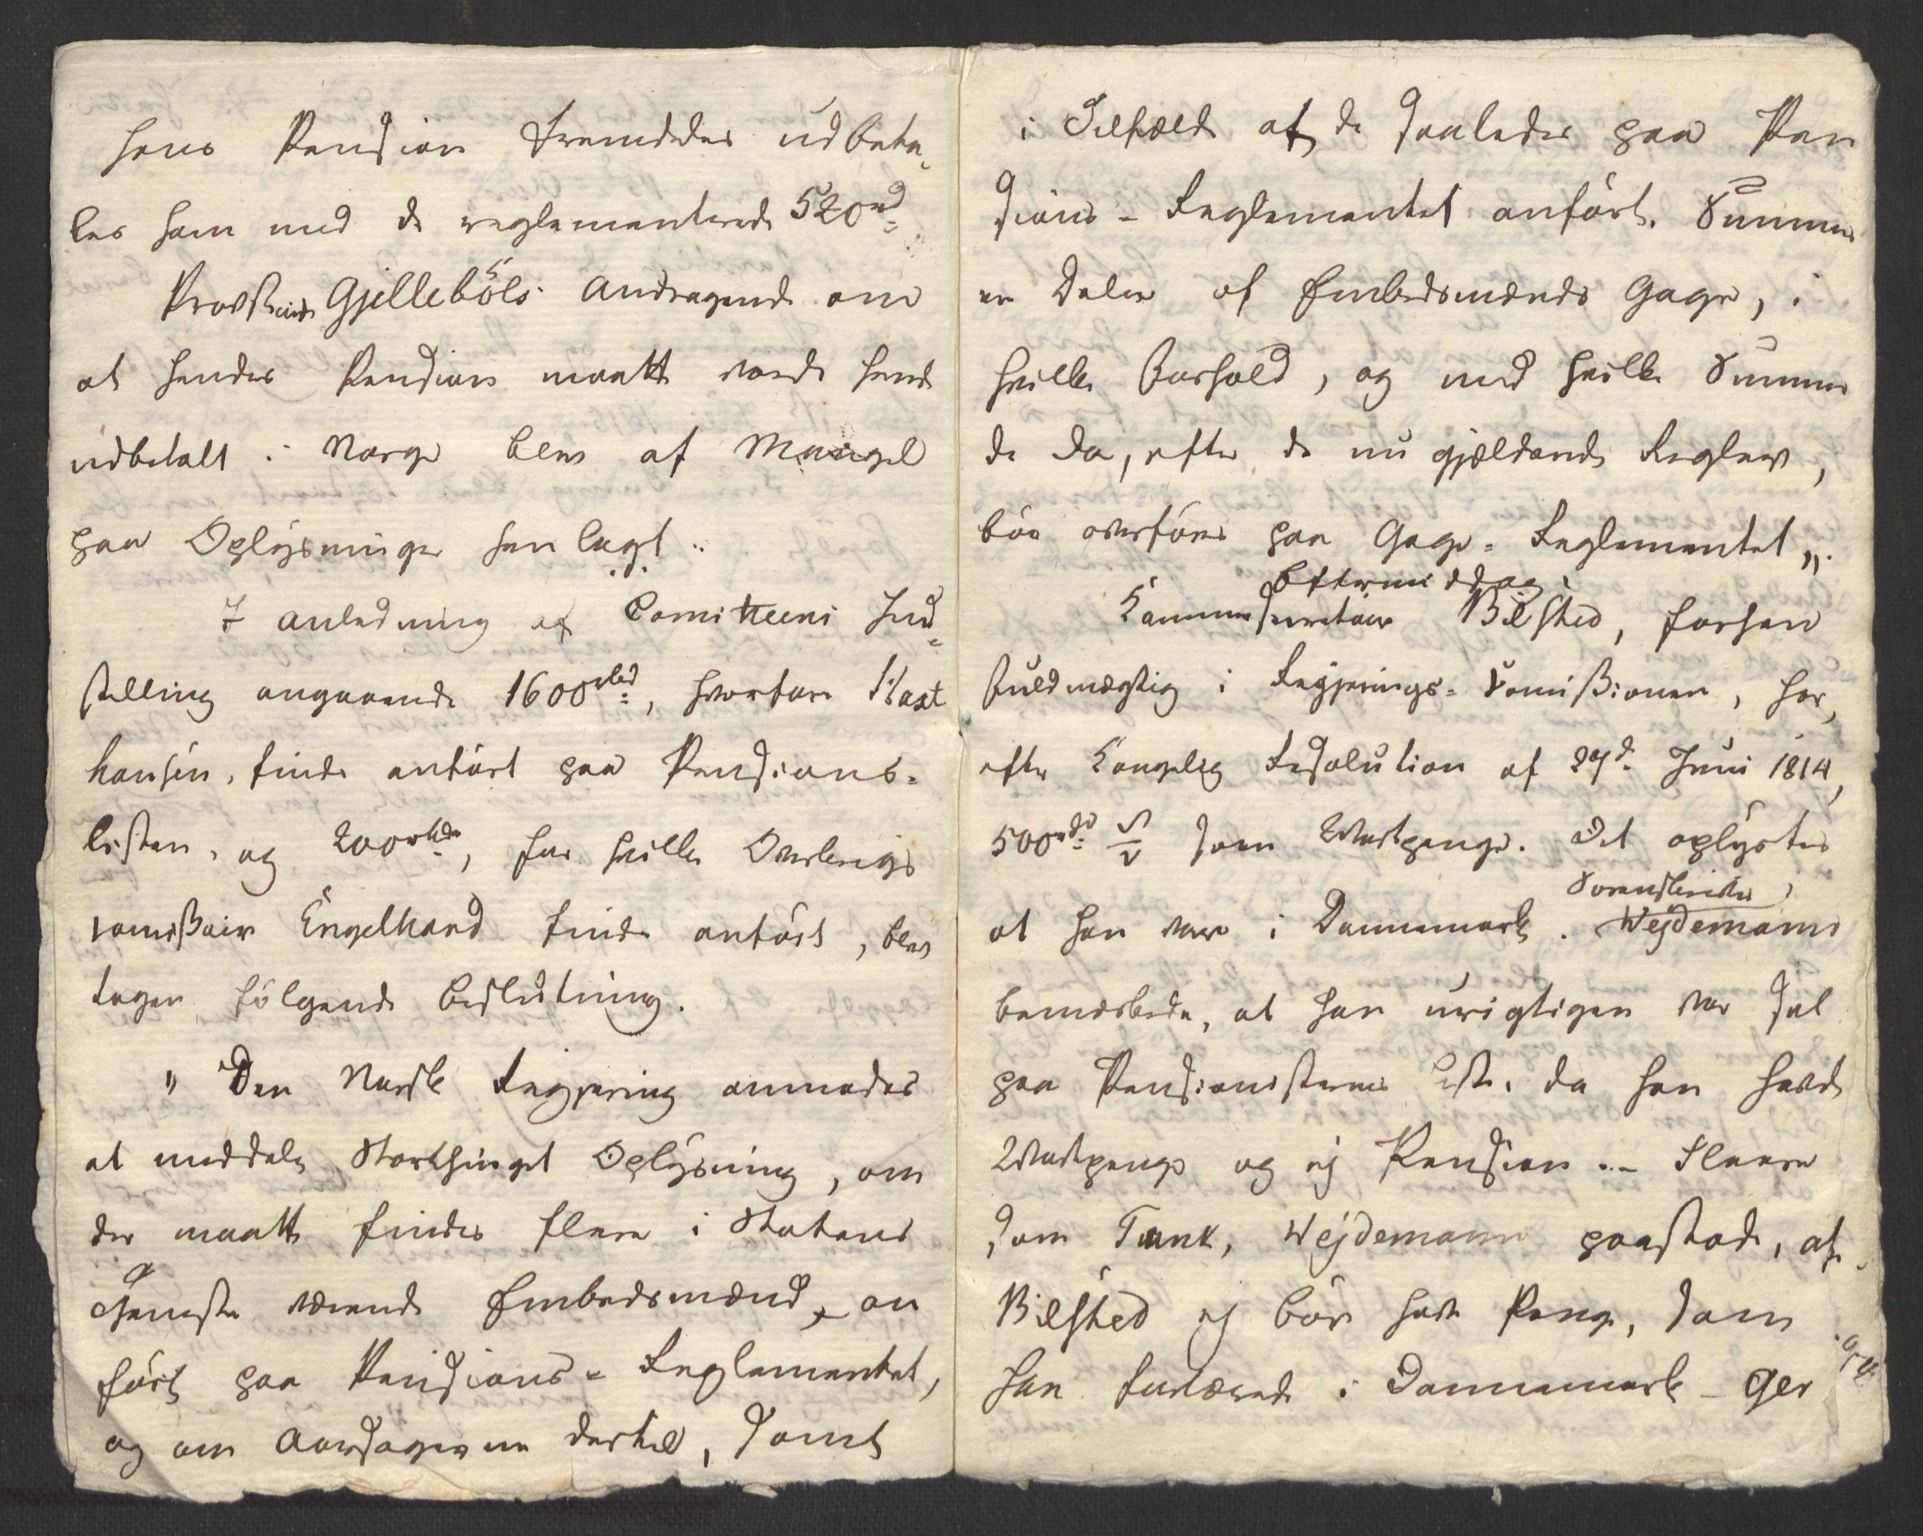 hans Pension fremdeles udbeta-
les ham med de reglementerede 520 rd
Provstinde Gjellebøls Andragende om
at hendes Pension maatte vorde hende
udbetalt i Norge blev af Mangel
paa Oplysninger henlagt.
I anledning af Comitteens Ind-
stilling angaaende 1600 rbd, hvorfore
hansen, findes anført paa Pensions-
listen, og 200 rbd, for hvilke Overkrigs
comissair Engelhard findes anført, blev
tagen følgende Beslutning.
" Den Norske Regjering anmodes
at meddele Storthinget Oplysning, om
der maatte findes flere i Statens
Tjeneste værende Embedsmænd, an
ført paa Pensions-Reglementet,
og om Aarsagerne dertil, samt
i Tilfælde af de saaledes paa Pen
sions-Reglementet anført. Summer
er Dele af Embedsmænds Gage, i
hvilke Forhold, og med hvilke Summer
de da, efter de nu gjældende Regler,
bør overføres paa Gage-Reglementet ".
Eftermiddag.
Kammersecretair Bilsted, forhen
Fuldmægtig i Regjerings-Comissionen, har,
efter Kongelig Resolution af 27d Juni 1814,
500 rdr som Vartpenge. Det oplystes
Sorenskriver
at han var i Dannemark. Wejdemann
bemærkede, at han urigtigen var sat
paa Pensionisternes Liste, da han havde
Vartpenge og ej Pension. - Fleere
som Tank, Wejdemann paastode, at
Bilsted ej bør have Penge, som
han fortærede i Dannemark - Ger